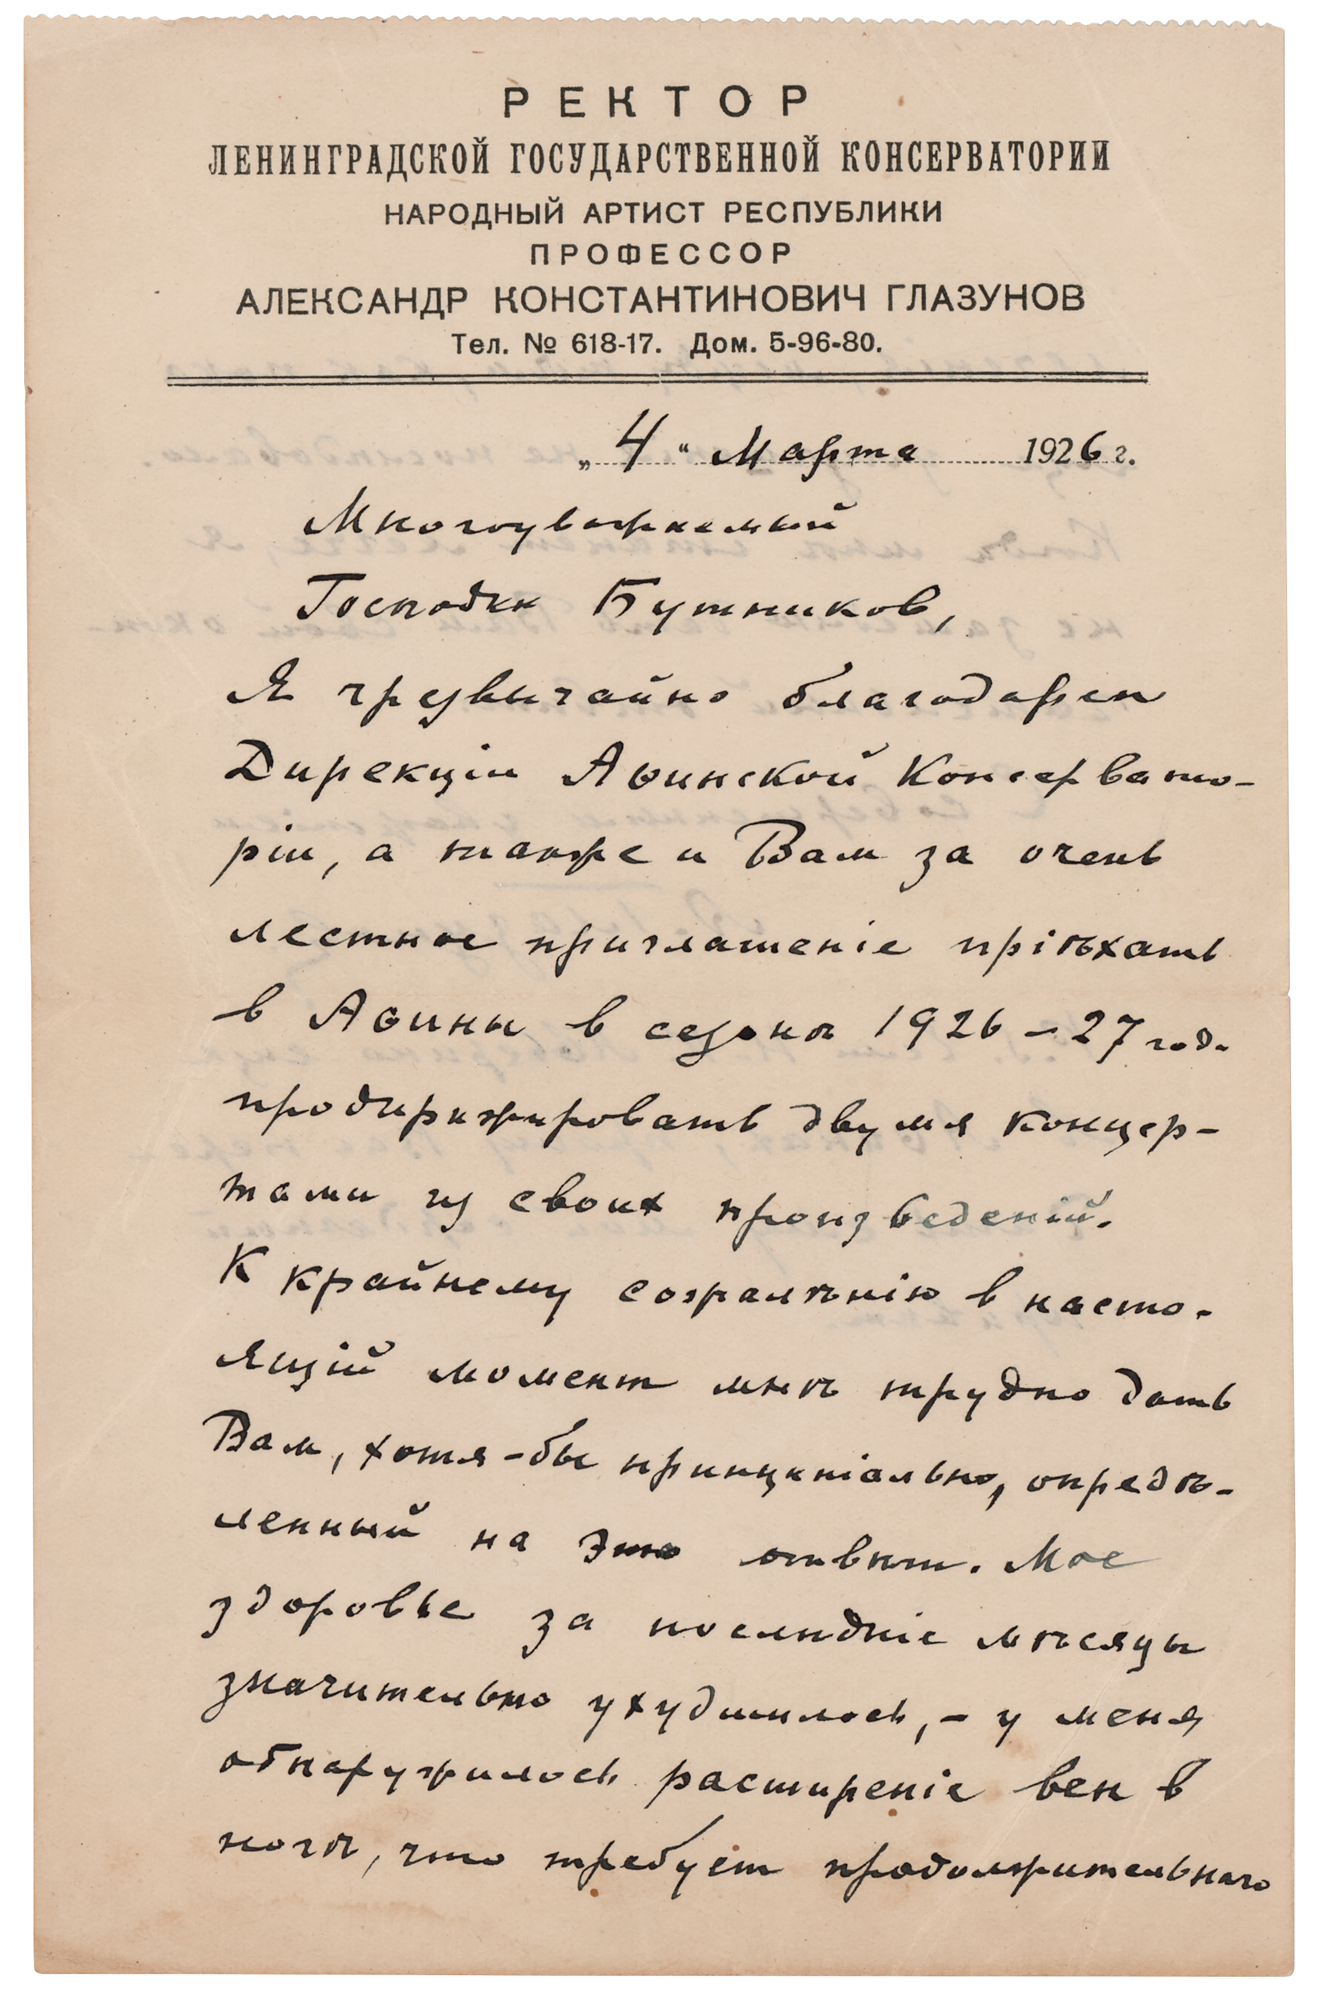 РЕКТОР
ЛЕНИНГРАДСКОЙ ГОСУДАРСТВЕННОЙ КОНСЕРВАТОРИИ
НАРОДНЫЙ АРТИСТ РЕСПУБЛИКИ
ПРОФЕССОР
АЛЕКСАНДР КОНСТАНТИНОВИЧ ГЛАЗУНОВ
Тел. № 618-17. Дом. 5-96-80.
„4“ Марта 1926 г.
Многоуважаемый
Господин Бутников,
Я чрезвычайно благодарен
Дирекціи Аѳинской Консервато-
ріи, а также и Вам за очень
лестное приглашеніе пріѣхать
в Аѳины в сезонѣ 1926-27 год.
продирижировать двумя концер-
тами из своих произведеній.
К крайнему сожалѣнію в насто-
ящій момент мнѣ трудно дать
Вам, хотя-бы принципіально, опредѣ-
ленный на это отвѣт. Мое
здоровье за послѣдніе мѣсяцы
значительно ухудшилось, - у меня
обнаружилось расширеніе вен в
ногѣ, что требует продолжительнаго